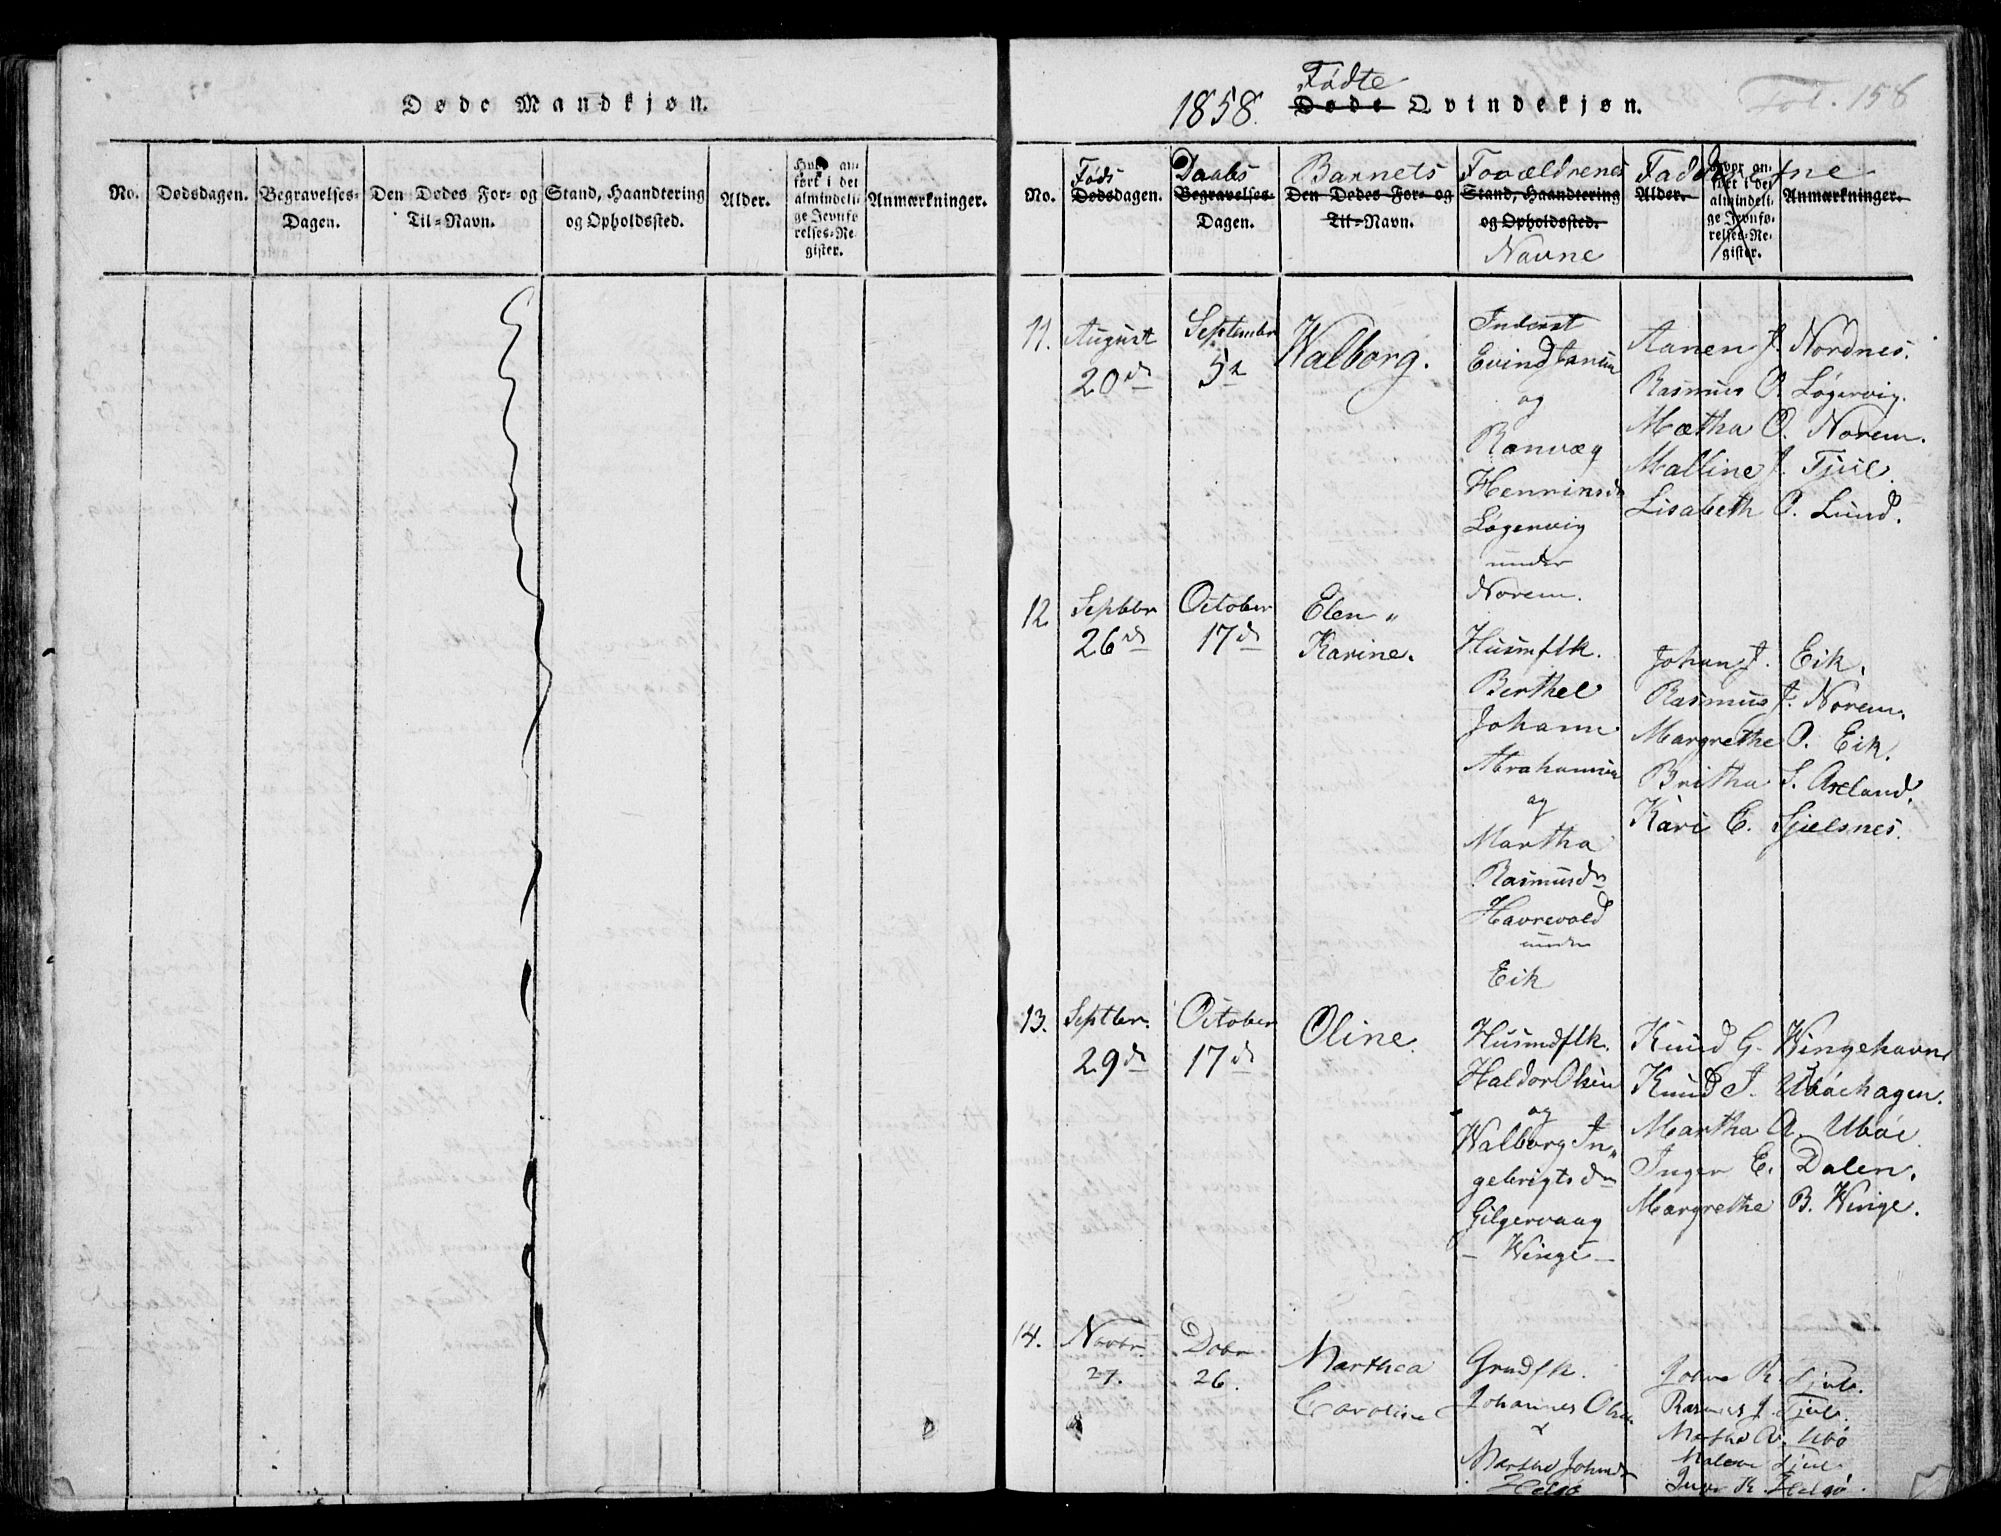 Døde Mandkjøn.
No.
Dødsdagen.
Begravelses-
Dagen.
Den Dødes For- og
Til-Navn.
Stand, Haandtering
og Opholdssted.
Alder.
Hvor an-
ført i det
almindeli-
ge Jevnfø
relses-Re
gister.
Anmærkninger.
Fol. 158
1858. Fødte
Døde Qvindekjøn.
No.
Føds
Dødsdagen.
Daabs
Begravelses-
Dagen.
Barnets
Den Dødes For- og
Til-Navn.
Forældrenes
Stand, Haandtering
og Opholdssted.
Navne
Faddr
Alder.
Hvor an-
ført i det
almindeli-
ge Jevnfø-
relses-Re-
gister.
ne
Anmærkninger.
11.
August
20de
September
5te
Walborg.
Inderst
Evind
og
Ranvæg
Henrinsd
Løgervig
under
Norem.
Aanen J. Nordnes.
Rasmus O. Løgervig.
Mætha O. Norem.
Malline J. Tjul.
Lisabeth O. Lund.
12.
Septbr
26de
October
17de
Elen„
Karine.
Husmflk.
Berthel
Johann
Abrahamsen
og
Martha
Rasmusdr
Havrevold
under
Eik
Johan J. Eik.
Rasmus J. Norem.
Margrethe O. Eik.
Britha S. Axland.
Kari E. Hjelsnes.
13.
Septbr.
29de
October
17de
Oline.
Husmdflk.
Haldor Olsen
og
Walborg In„
gebrigtsdr
Gilgervaag
– Winge –
Knud G. Wingehavn
Knud J. Ubøehagen.
Martha A. Ubøe
Inger E. Dalen.
Margrethe B. Winge.
14.
Novbr.
27.
Dcbr
26.
Marthea
Caroline
Grndflk.
Johannes Olsen
&
Martha Johnsdr
Helgø
John R. Tjul.
Rasmus J. Tjul.
Martha A. Ubø
Malene Tjul
R. Helgø.